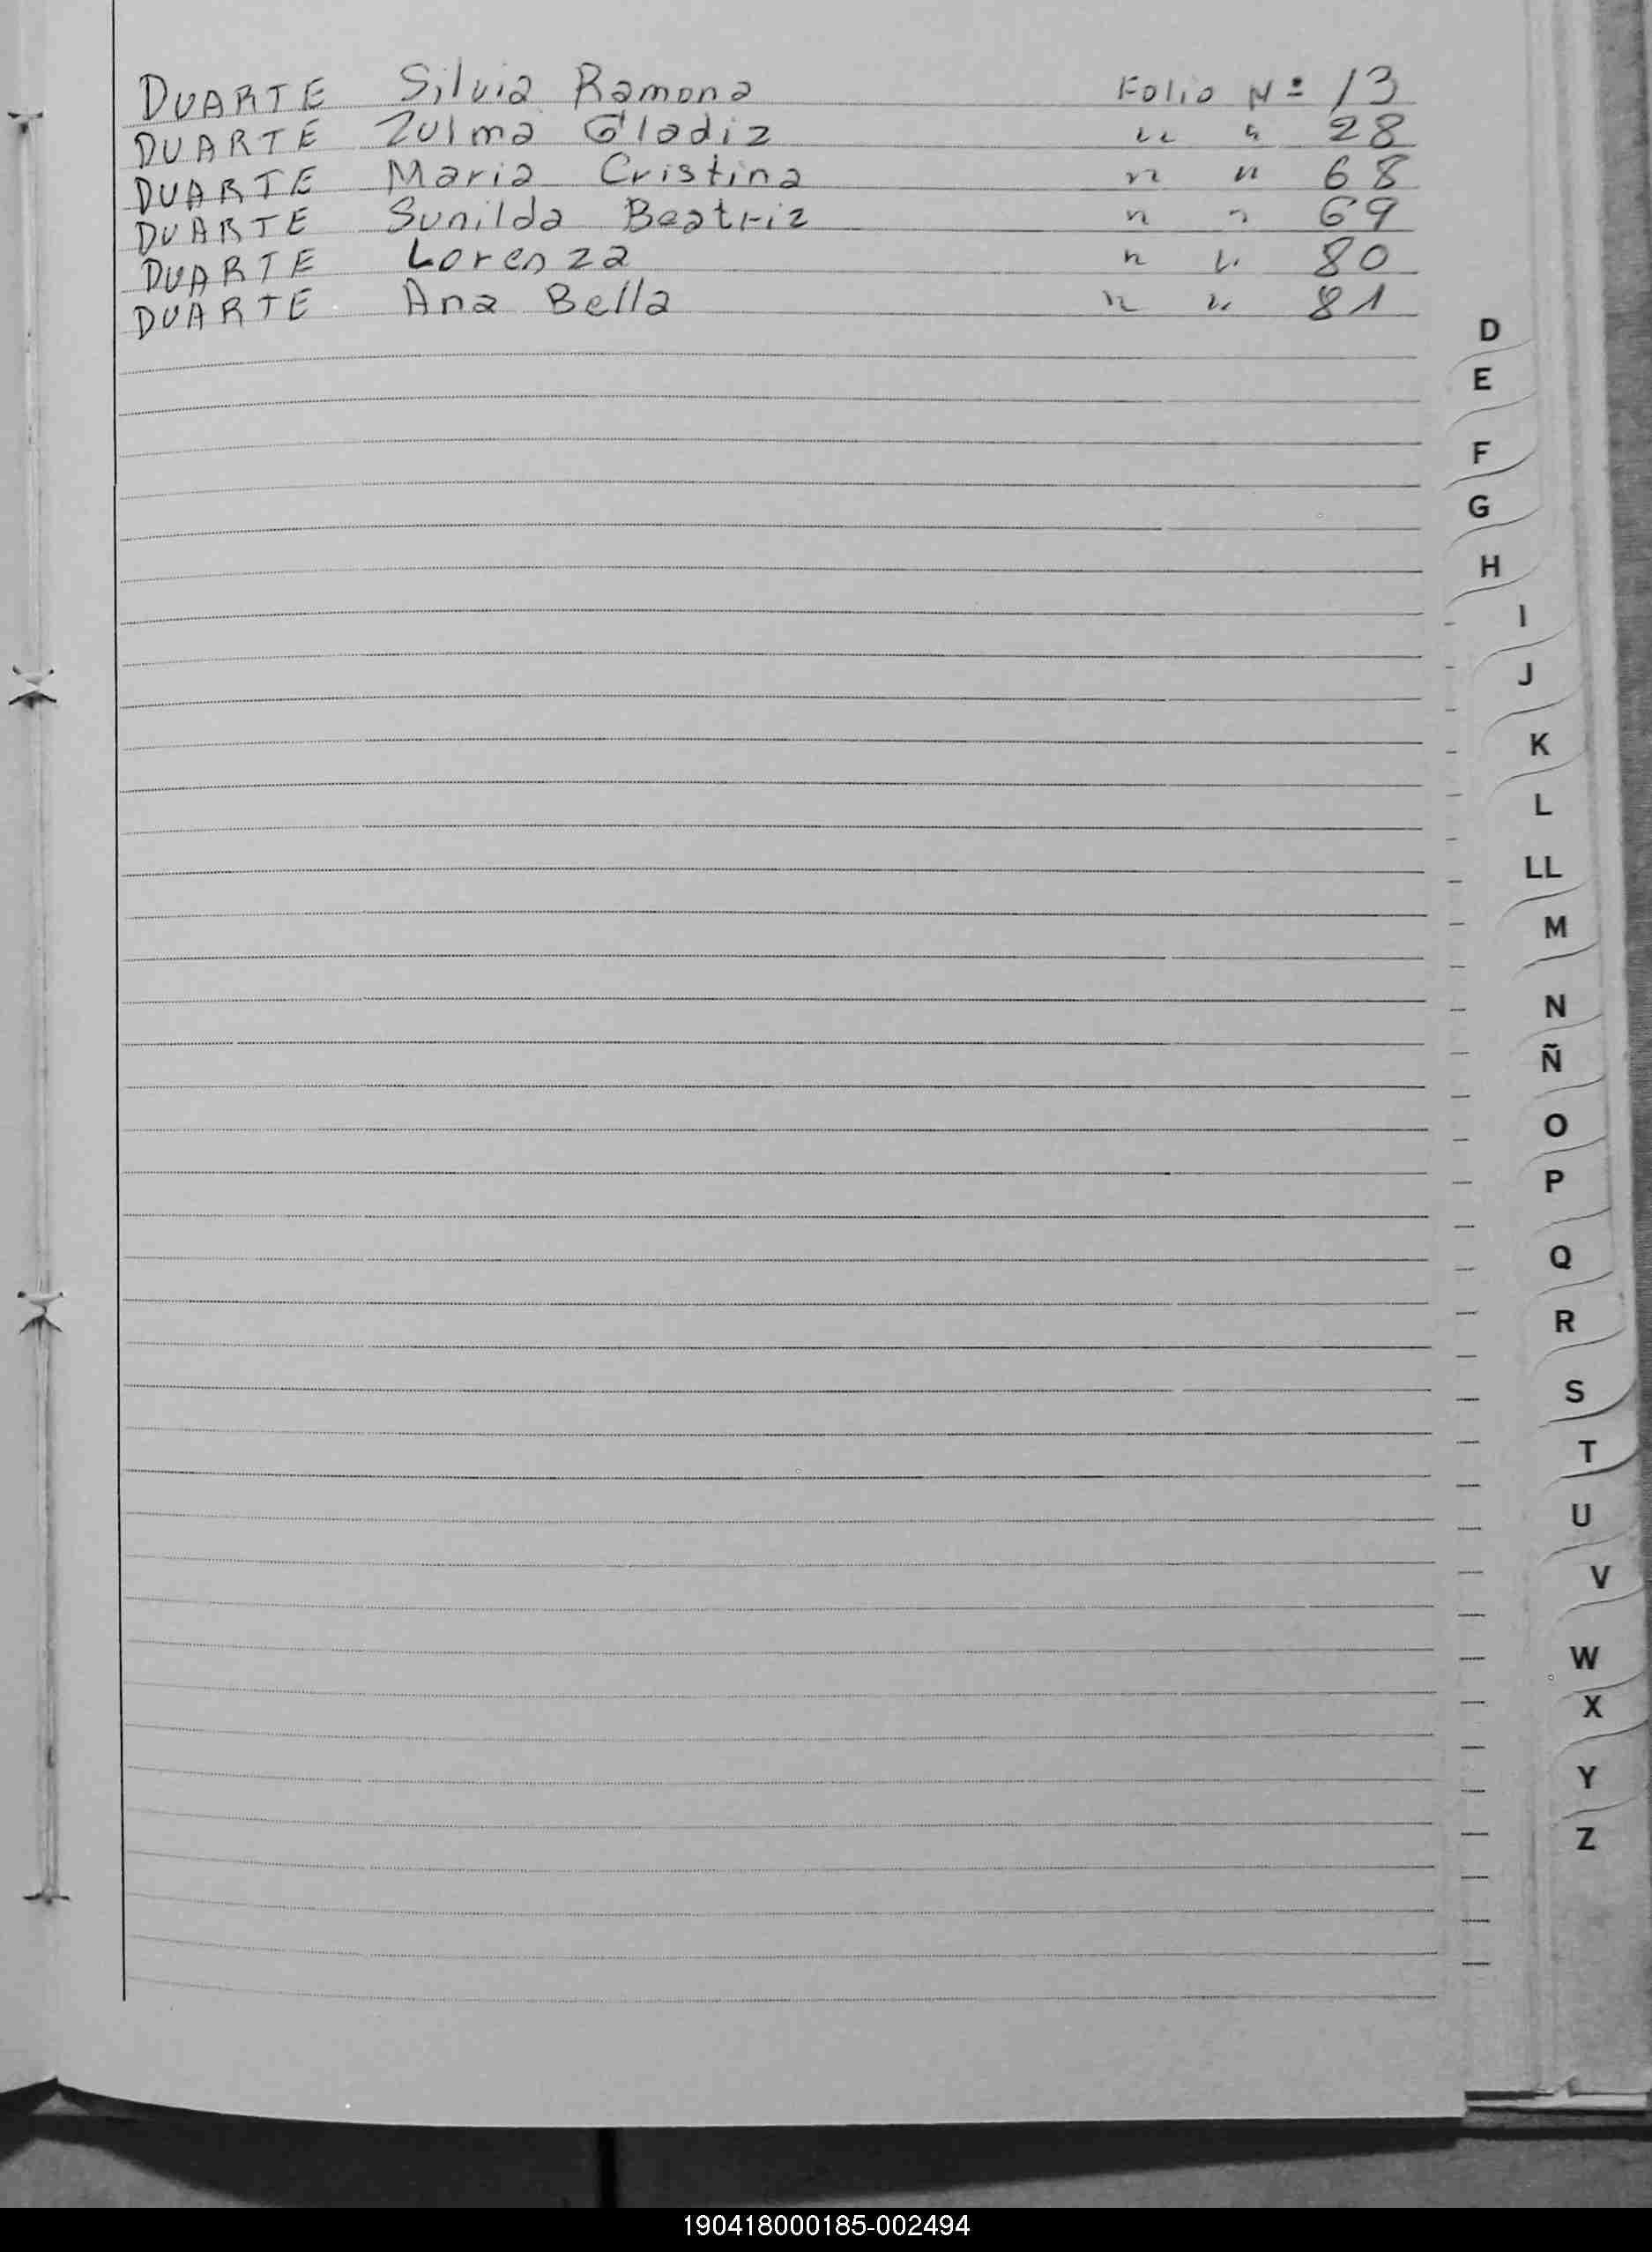 DUARTE Silvia Ramona Folio Nº 13
DUARTE Zulma Gladiz " " 28
DUARTE Maria Cristina " " 68
DUARTE Sunilda Beatriz " " 69
DUARTE Lorenza " " 80
DUARTE Ana Bella " " 81
D
E
F
G
H
I
J
K
L
LL
M
N
Ñ
O
P
Q
R
S
T
U
V
W
X
Y
Z
190418000185-002494